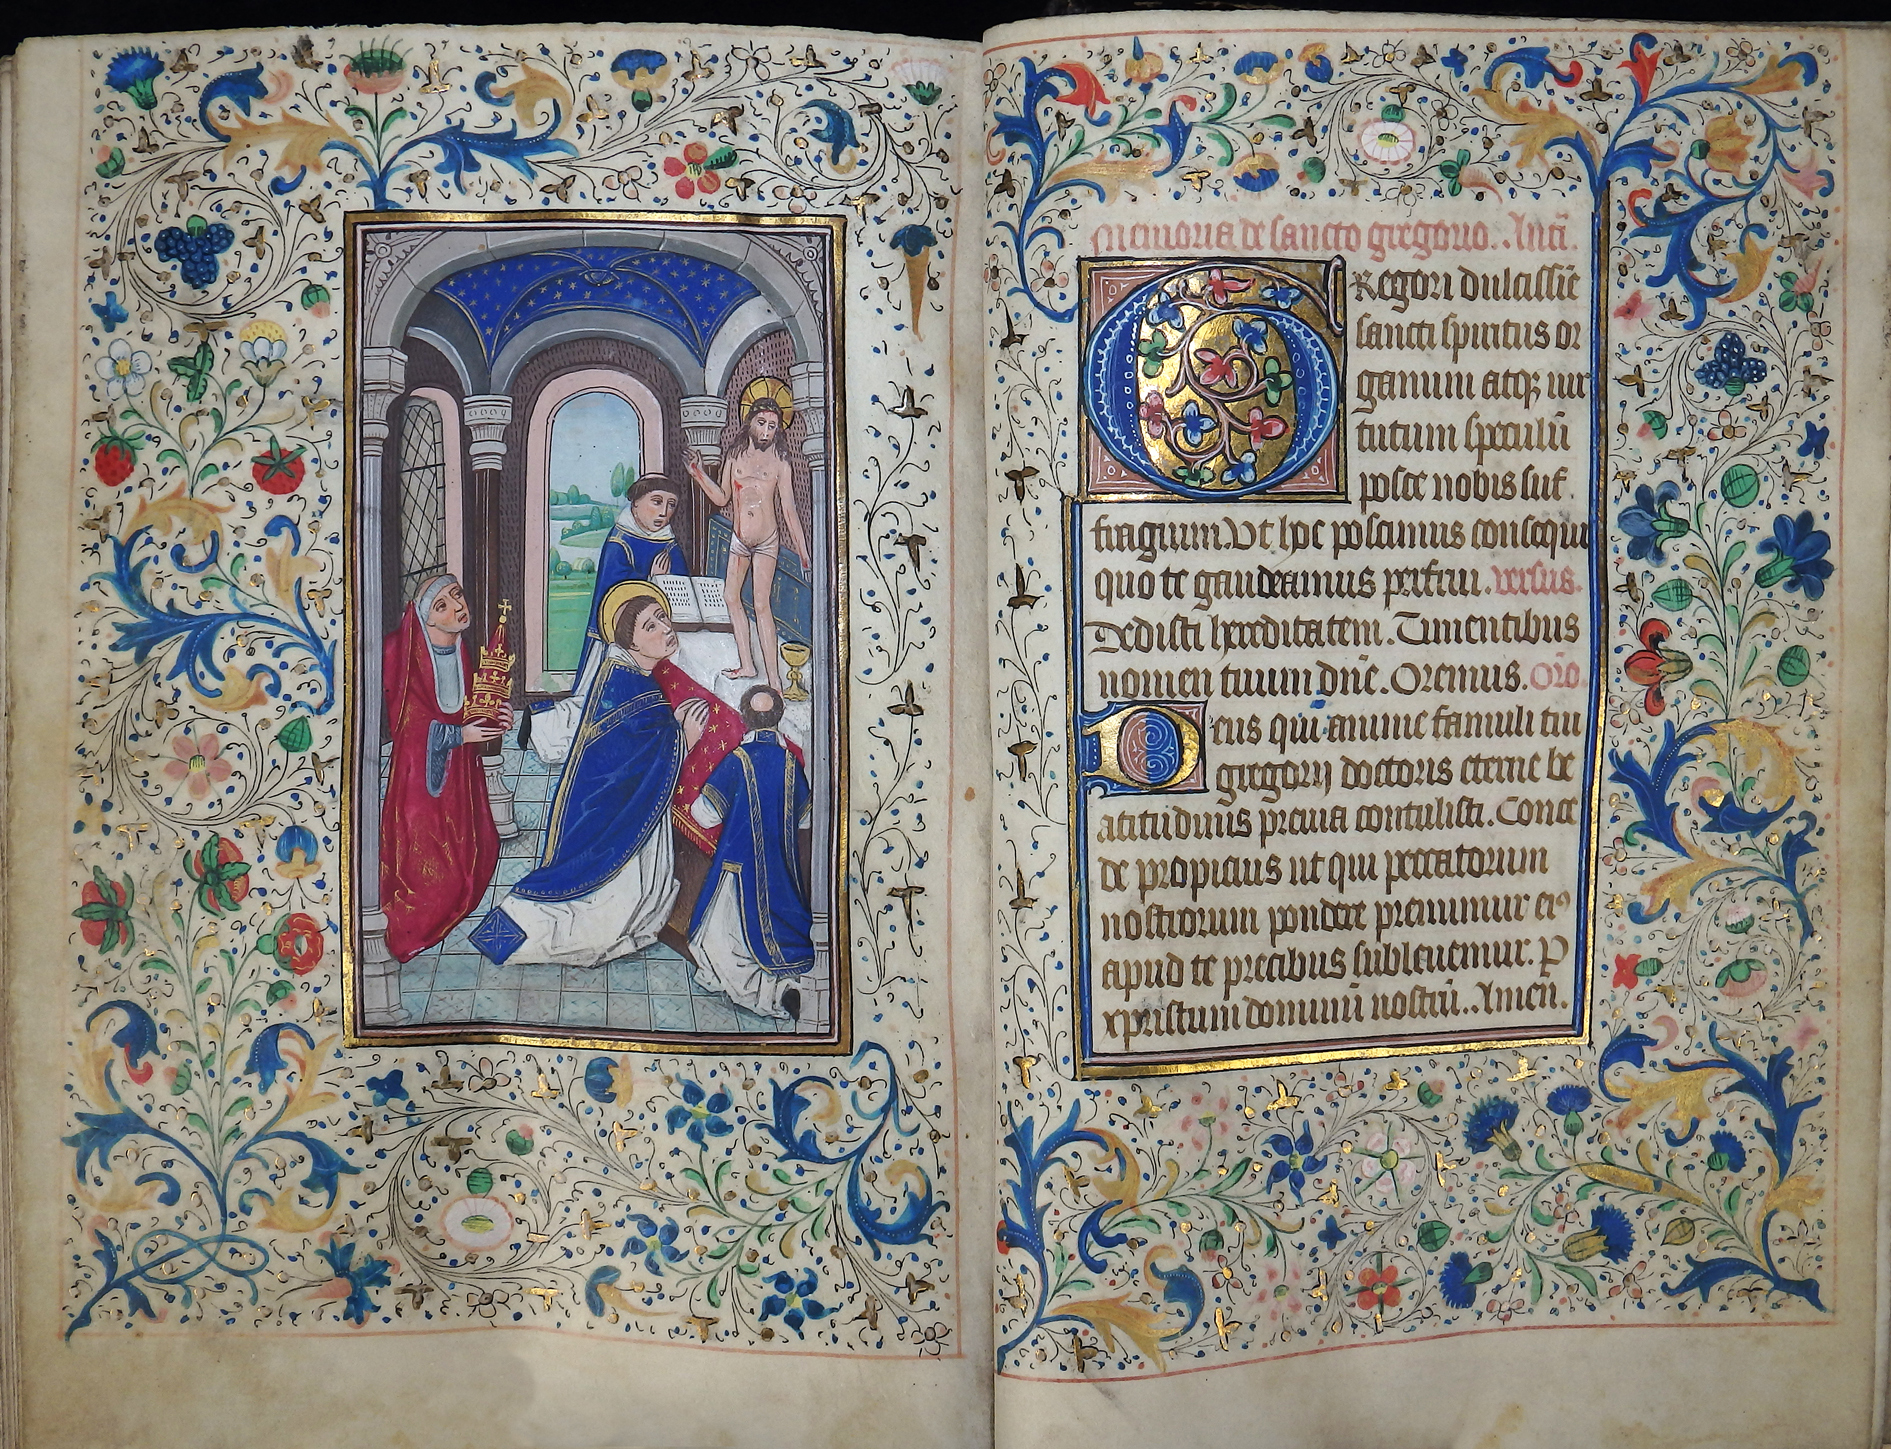 Memoria de sancto gregorio. Antī.
GRegori dulcissīe
sancti spiritus or
ganum atqꝫ uir
tutum speculū
posce nobis suf
fragium. Ut hoc poscimus consequi
quo te gaudeamus perfrui. versus.
Dedisti hereditatem. Timentibus
nomen tuum dn̄e. Oremus. Orō
Deus qui anime famuli tui
gregorij doctoris eterne be
atitudinis premia contulisti. Conce
de propicius ut qui peccatorum
nostrorum pondere premimur eiꝰ
apud te precibus subleuemur. P
xpristum dominū nostrū. Amen.